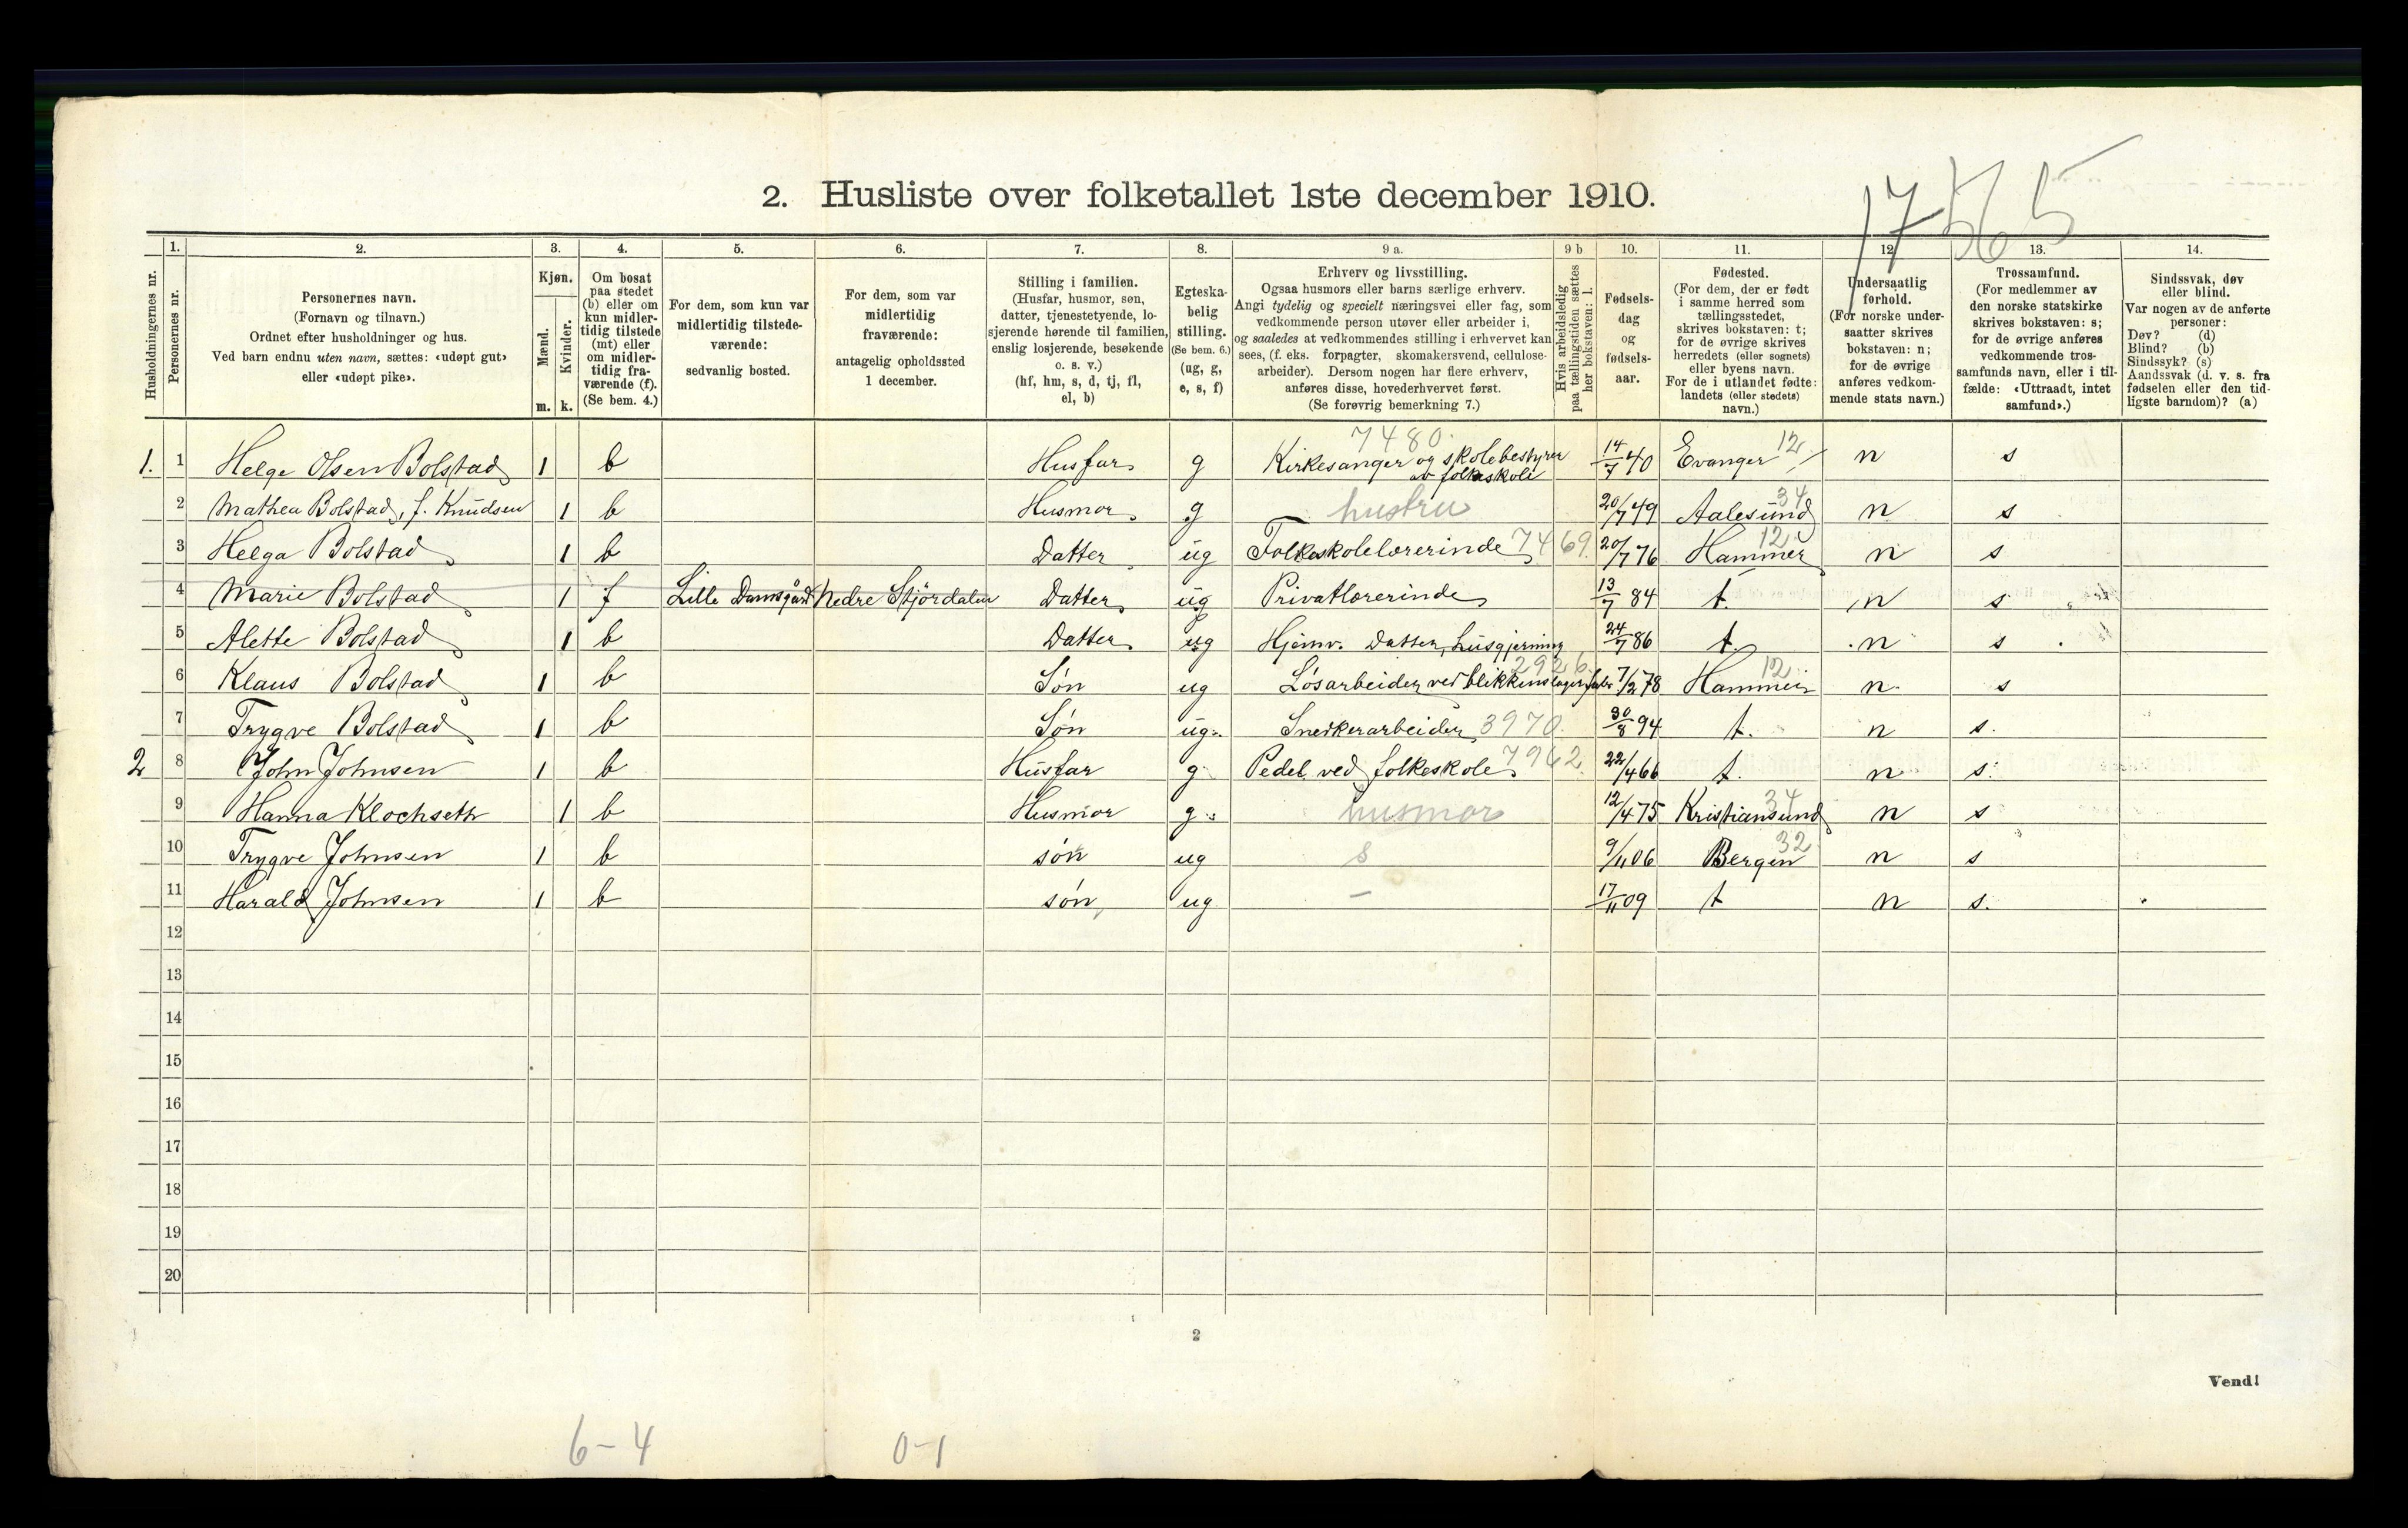 17565
2. Husliste over folketallet 1ste december 1910.
1. 2. 3. 4. 5. 6. 7. 8. 9 a. 9 b 10. 11. 12. 13. 14.
Husholdningernes nr.
Personernes nr.
Personernes navn.
(Fornavn og tilnavn.)
Ordnet efter husholdninger og hus.
Ved barn endnu uten navn, sættes: «udøpt gut»
eller «udøpt pike».
Kjøn.
Mænd.
Kvinder.
m. k.
Om bosat
paa stedet
(b) eller om
kun midler-
tidig tilstede
(mt) eller
om midler-
tidig fra-
værende (f).
(Se bem. 4.)
For dem, som kun var
midlertidig tilstede-
værende:
sedvanlig bosted.
For dem, som var
midlertidig
fraværende:
antagelig opholdssted
1 december.
Stilling i familien.
(Husfar, husmor, søn,
datter, tjenestetyende, lo-
sjerende hørende til familien,
enslig losjerende, besøkende
o. s. v.)
(hf, hm, s, d, tj, fl,
el, b)
Egteska-
belig
stilling.
(Se bem. 6.)
(ug, g,
e, s, f)
Erhverv og livsstilling.
Ogsaa husmors eller barns særlige erhverv.
Angi tydelig og specielt næringsvei eller fag, som
vedkommende person utøver eller arbeider i,
og saaledes at vedkommendes stilling i erhvervet kan
sees, (f. eks. forpagter, skomakersvend, cellulose-
arbeider). Dersom nogen har flere erhverv,
anføres disse, hovederhvervet først.
(Se forøvrig bemerkning 7.)
Hvis arbeidsledig
paa tællingstiden sættes
her bokstaven: l.
Fødsels-
dag
og
fødsels-
aar.
Fødested.
(For dem, der er født
i samme herred som
tællingsstedet,
skrives bokstaven: t;
for de øvrige skrives
herredets (eller sognets)
eller byens navn.
For de i utlandet fødte:
landets (eller stedets)
navn.)
Undersaatlig
forhold.
(For norske under-
saatter skrives
bokstaven: n;
for de øvrige
anføres vedkom-
mende stats navn.)
Trossamfund.
(For medlemmer av
den norske statskirke
skrives bokstaven: s;
for de øvrige anføres
vedkommende tros-
samfunds navn, eller i til-
fælde: «Uttraadt, intet
samfund».)
Sindssvak, døv
eller blind.
Var nogen av de anførte
personer:
Døv? (d)
Blind? (b)
Sindssyk? (s)
Aandssvak (d. v. s. fra
fødselen eller den tid-
ligste barndom)? (a)
7480
1. 1 Helge Olsen Bolstad 1 b Husfar g Kirkesanger og skolebestyrer 14/7 40 Evanger 12 n s
av folkeskole
2 Mathea Bolstad, f. Knudsen 1 b Husmor g hustru 20/7 49 Aalesund 34 n s
3 Helga Bolstad 1 b Datter ug Folkeskolelærerinde 7469 20/7 76 Hammer 12 n s
4 Marie Bolstad 1 f Lille Damsgård Nedre Stjördalen Datter ug Privatlærerinde 13/7 84 t. n s
5 Alette Bolstad 1 b Datter ug Hjemv. Datter, husgjerning 24/7 86 t. n s
2926
6 Klaus Bolstad 1 b Søn ug Løsarbeider ved blikkenslagerfabr 7/2 78 Hammer 12 n. s
7 Trygve Bolstad 1 b Søn ug. Snekerarbeider 3970 30/8 94 t. n s.
2 8 John Johnsen 1 b Husfar g Pedel ved folkeskole 7962 22/4 66 t. n s.
9 Hanna Klochseth 1 b Husmor g. husmor 12/4 75 Kristiansund 34 n s
10 Trygve Johnsen 1 b søn ug s 9/11 06 Bergen 32 n s
11 Harald Johnsen 1 b søn ug – 17/11 09 t n s.
12
13
14
15
16
17
18
19
20
2
Vend!
6-4 0-1